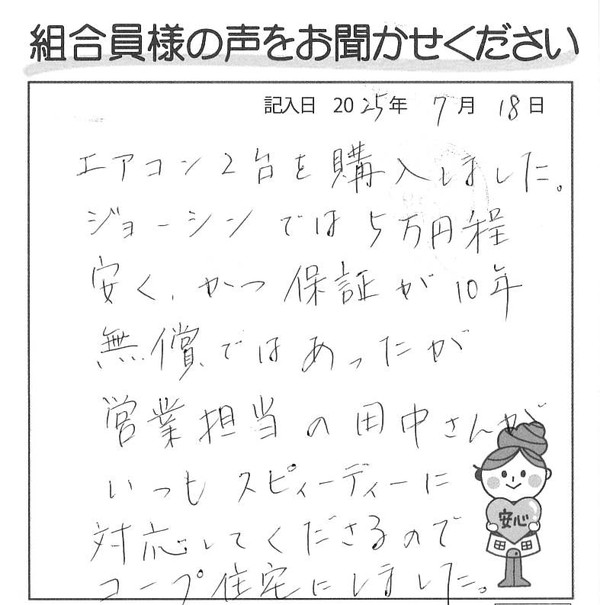 組合員様の声をお聞かせください
記入日 2025年 7月 18日
エアコン2台を購入しました。
ジョーシンでは5万円程
安く、かつ保証が10年
無償ではあったが
営業担当の田中さんが
いつもスピィーディーに
対応してくださるので
コープ住宅にしました。
安心